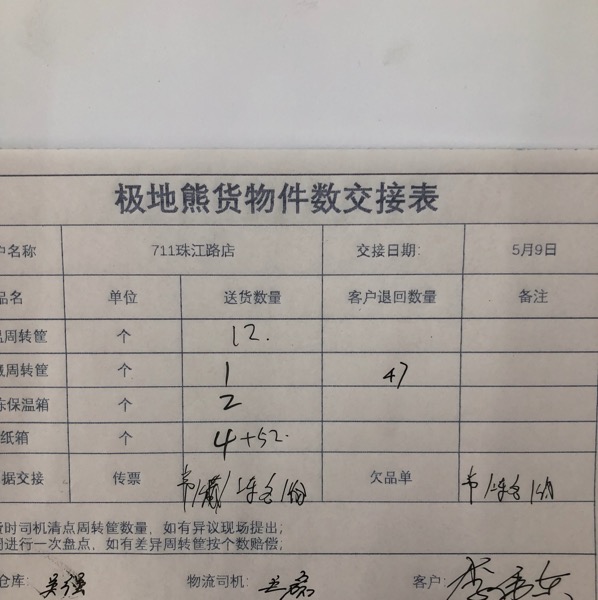 极地熊货物件数交接表
户名称 711珠江路店 交接日期: 5月9日
品名 单位 送货数量 客户退回数量 备注
周转筐 个 12.
周转筐 个 1 47
冻保温箱 个 2
纸箱 个 4+52.
据交接 传票 欠品单
货时司机清点周转筐数量，如有异议现场提出;
周进行一次盘点，如有差异周转筐按个数赔偿;
仓库: 吴强 物流司机: 客户: